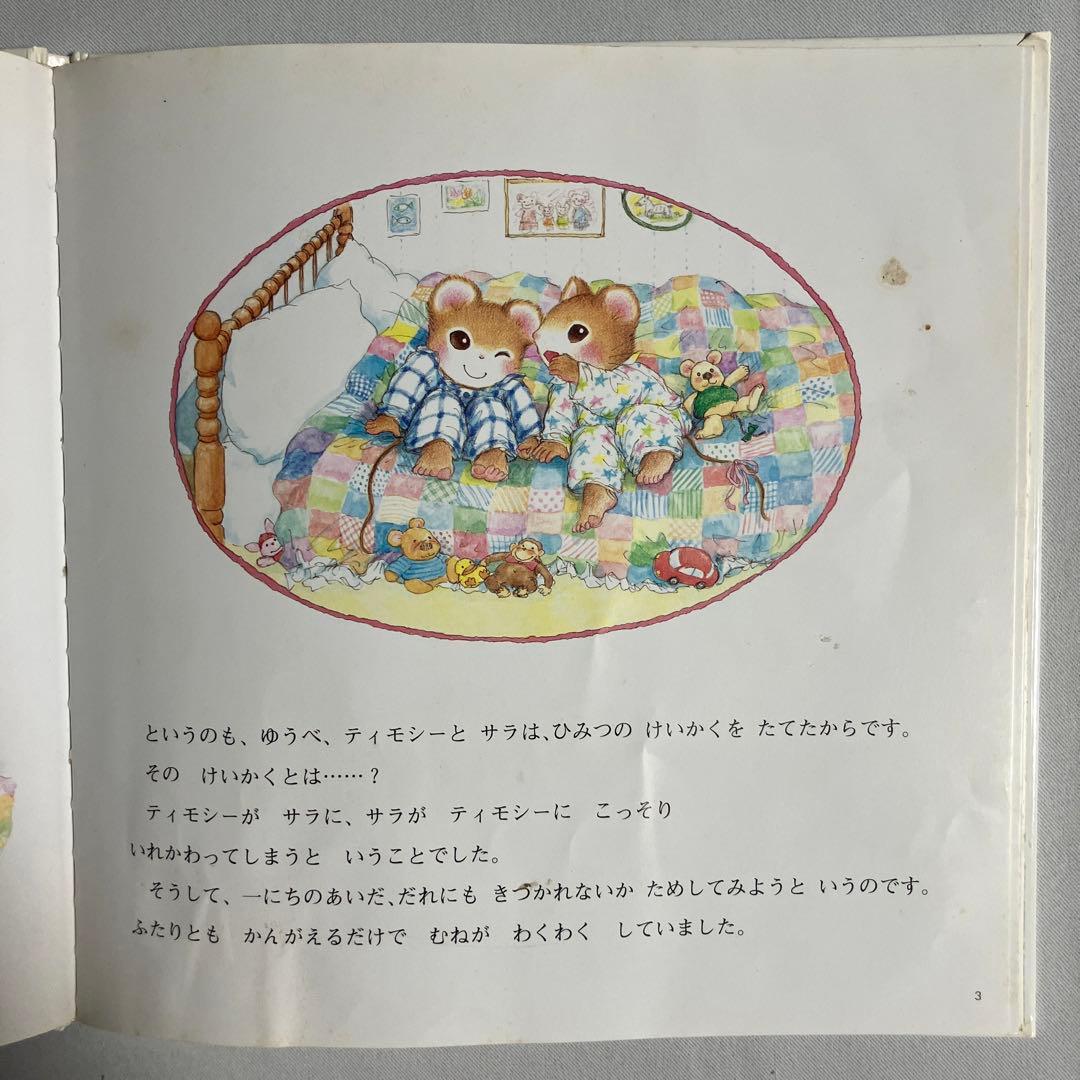 というのも、ゆうべ、ティモシーと サラは、ひみつの けいかくを たてたからです。
その　けいかくとは……？
ティモシーが　サラに、サラが　ティモシーに　こっそり
いれかわってしまうと　いうことでした。
そうして、一にちのあいだ、だれにも きづかれないか ためしてみようと いうのです。
ふたりとも　かんがえるだけで　むねが　わくわく　していました。
3